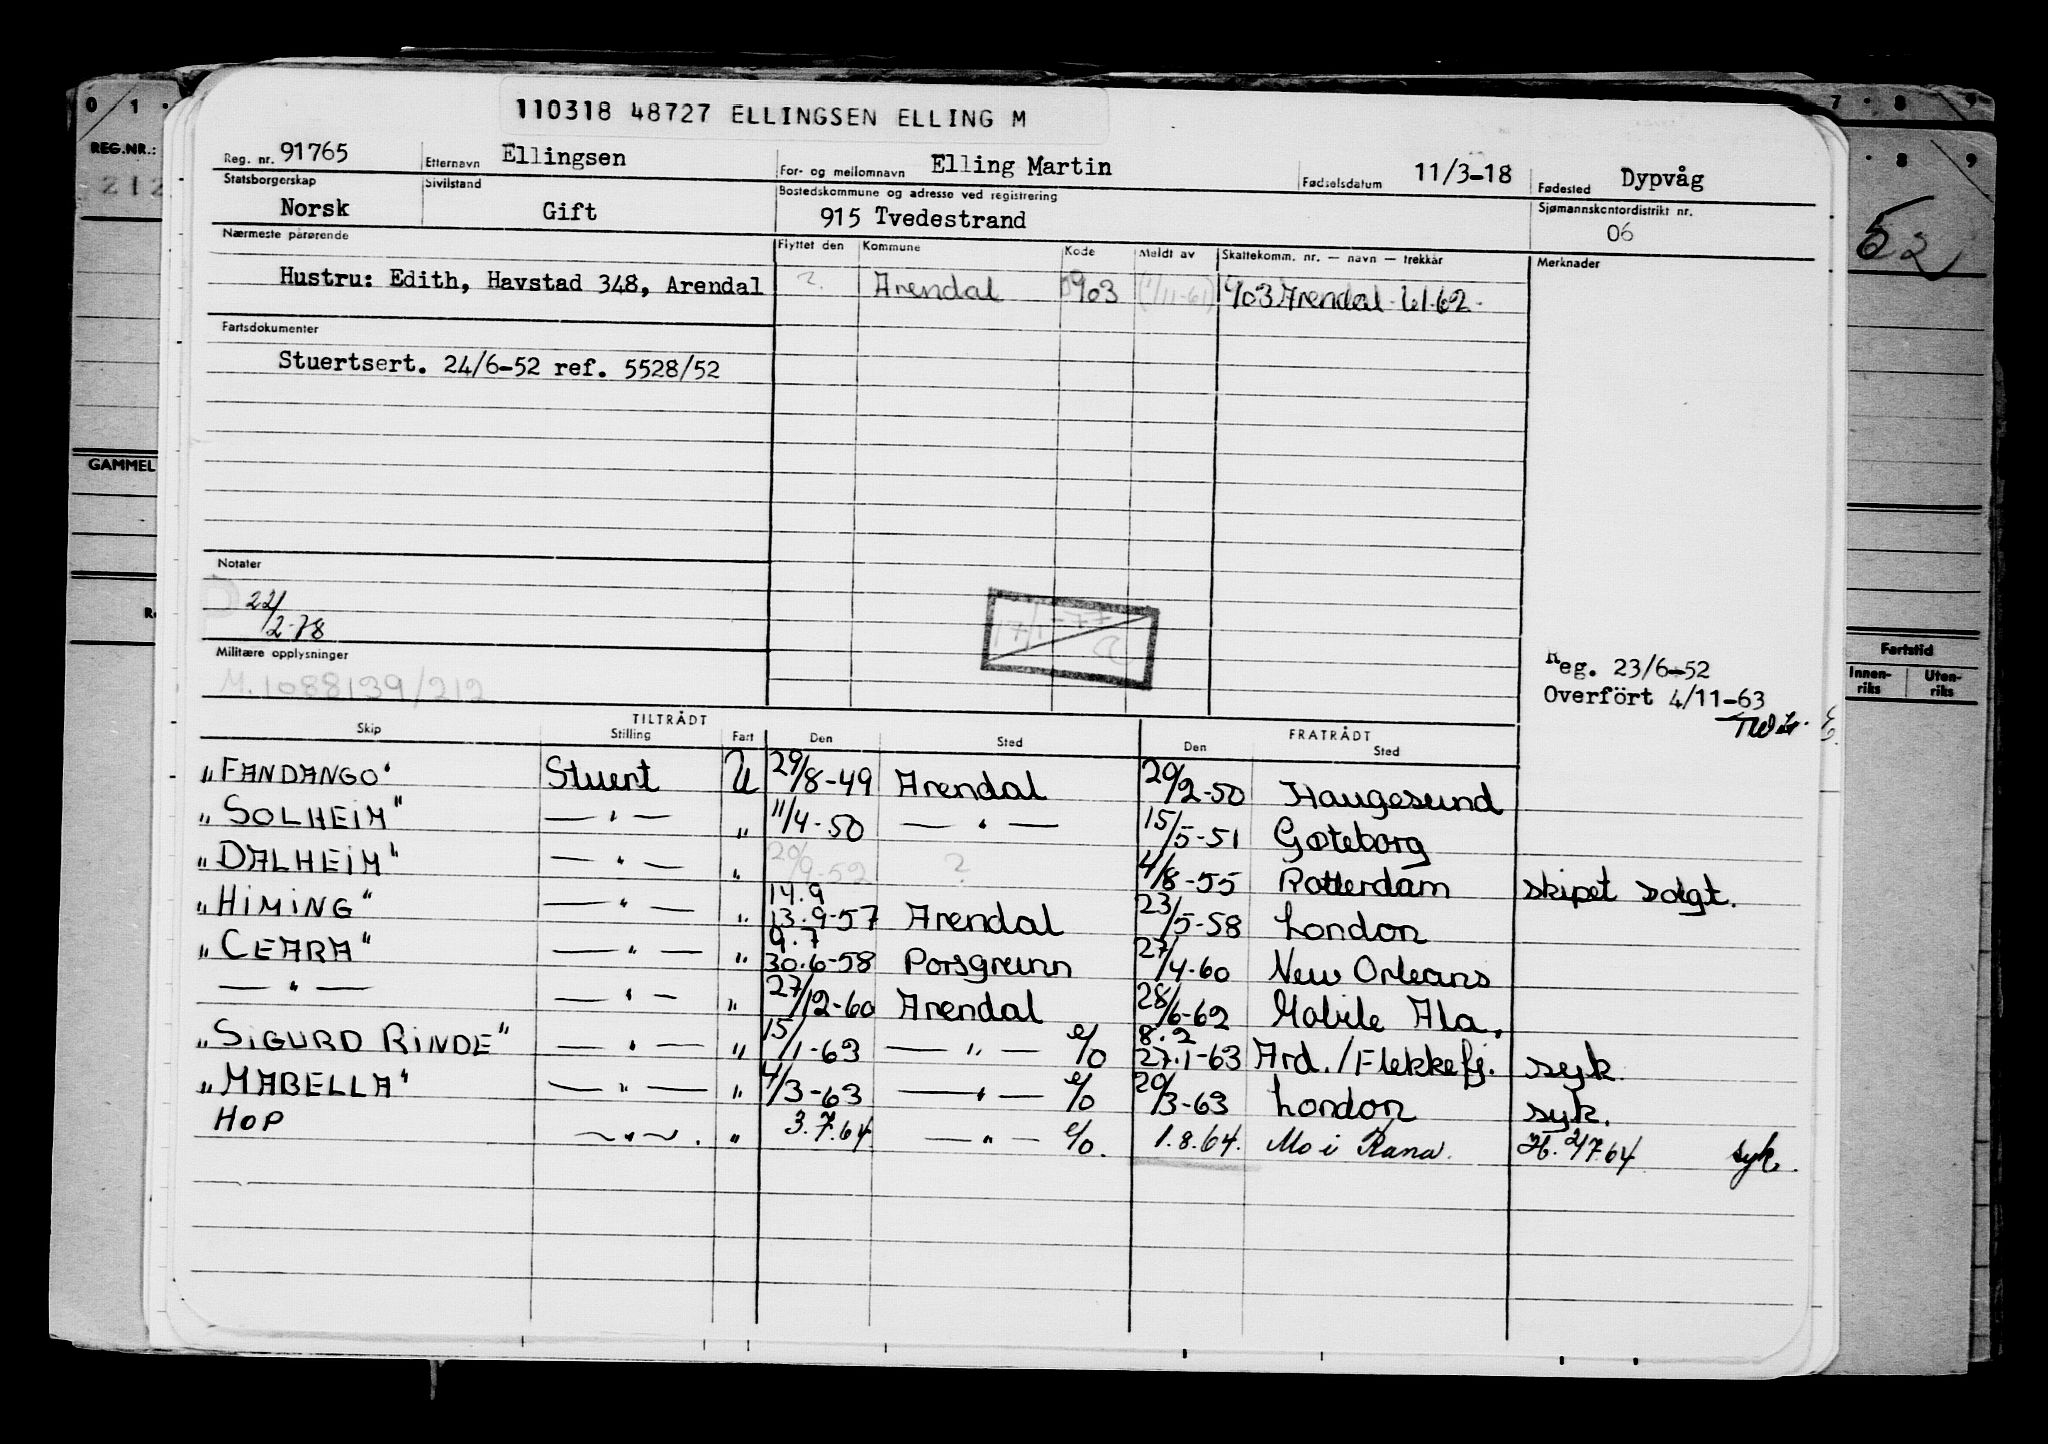 110318 48727 ELLINGSEN ELLING M
Reg. nr. 91765 Etternavn Ellingsen For- og mellomnavn Elling Martin Fødselsdatum 11/3-18 Fødested Dypvåg
Statsborgerskap Sivilstand Bostedskommune og adresse ved registrering Sjømannskontordistrikt nr.
Norsk Gift 915 Tvedestrand 06
Nærmeste pårørende Flyttet den Kommune Kode Meldt av Skattekomm. nr. — navn — trekkår Merknader
Hustru: Edith, Havstad 348, Arendal ? Arendal 0903 (1/11-61) 903 Arendal 61.62.
Fartsdokumenter
Stuertsert. 24/6-52 ref. 5528/52
Notater
22/2-78
17/1-77
Militære opplysninger
M.1088139/212
Reg. 23/6-52
Overfört 4/11-63
Skip TILTRÅDT Stilling Fart Den Sted FRATRÅDT Den Sted
"FANDANGO" Stuert U 29/8-49 Arendal 20/2-50 Haugesund
"SOLHEIM" — " — " 11/4-50 — " — 15/5-51 Gøteborg
"DALHEIM" — " — " 20/9-52 ? 4/8-55 Rotterdam skipet solgt.
14.9
"HIMING" — " — " 13.9-57 Arendal 23/5-58 London
9.7
"CEARA" — " — " 30.6-58 Porsgrunn 27/4-60 New Orleans
— " — — " — " 27/12-60 Arendal 28/6-62 Mobile Ala.
8.2
"SIGURD RINDE" — " — " 15/1-63 — " — e/o 27.1-63 Ard./Flekkefj. syk
"MABELLA" — " — " 4/3-63 — " — e/o 20/3-63 London syk.
HOP — " — " 3.7.64 — " — e/o. 1.8.64. Mo i Rana. syk.
0 1
REG.NR.:
212
GAMMEL
7 8 9
8 9
52
Fartstid
Innen-riks Uten-riks